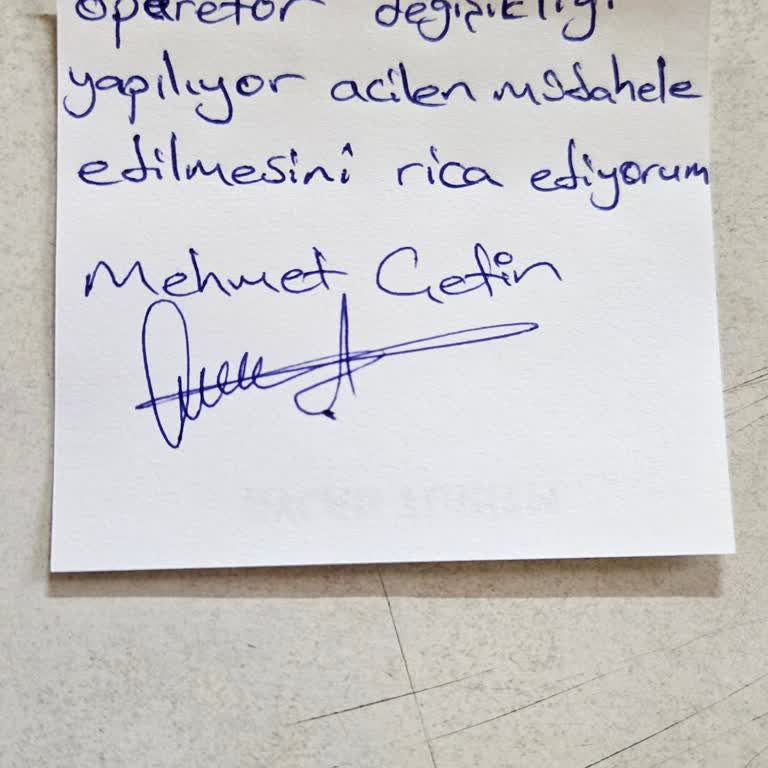 operetör değişikliği
yapılıyor acilen müdahele
edilmesini rica ediyorum
Mehmet Çetin